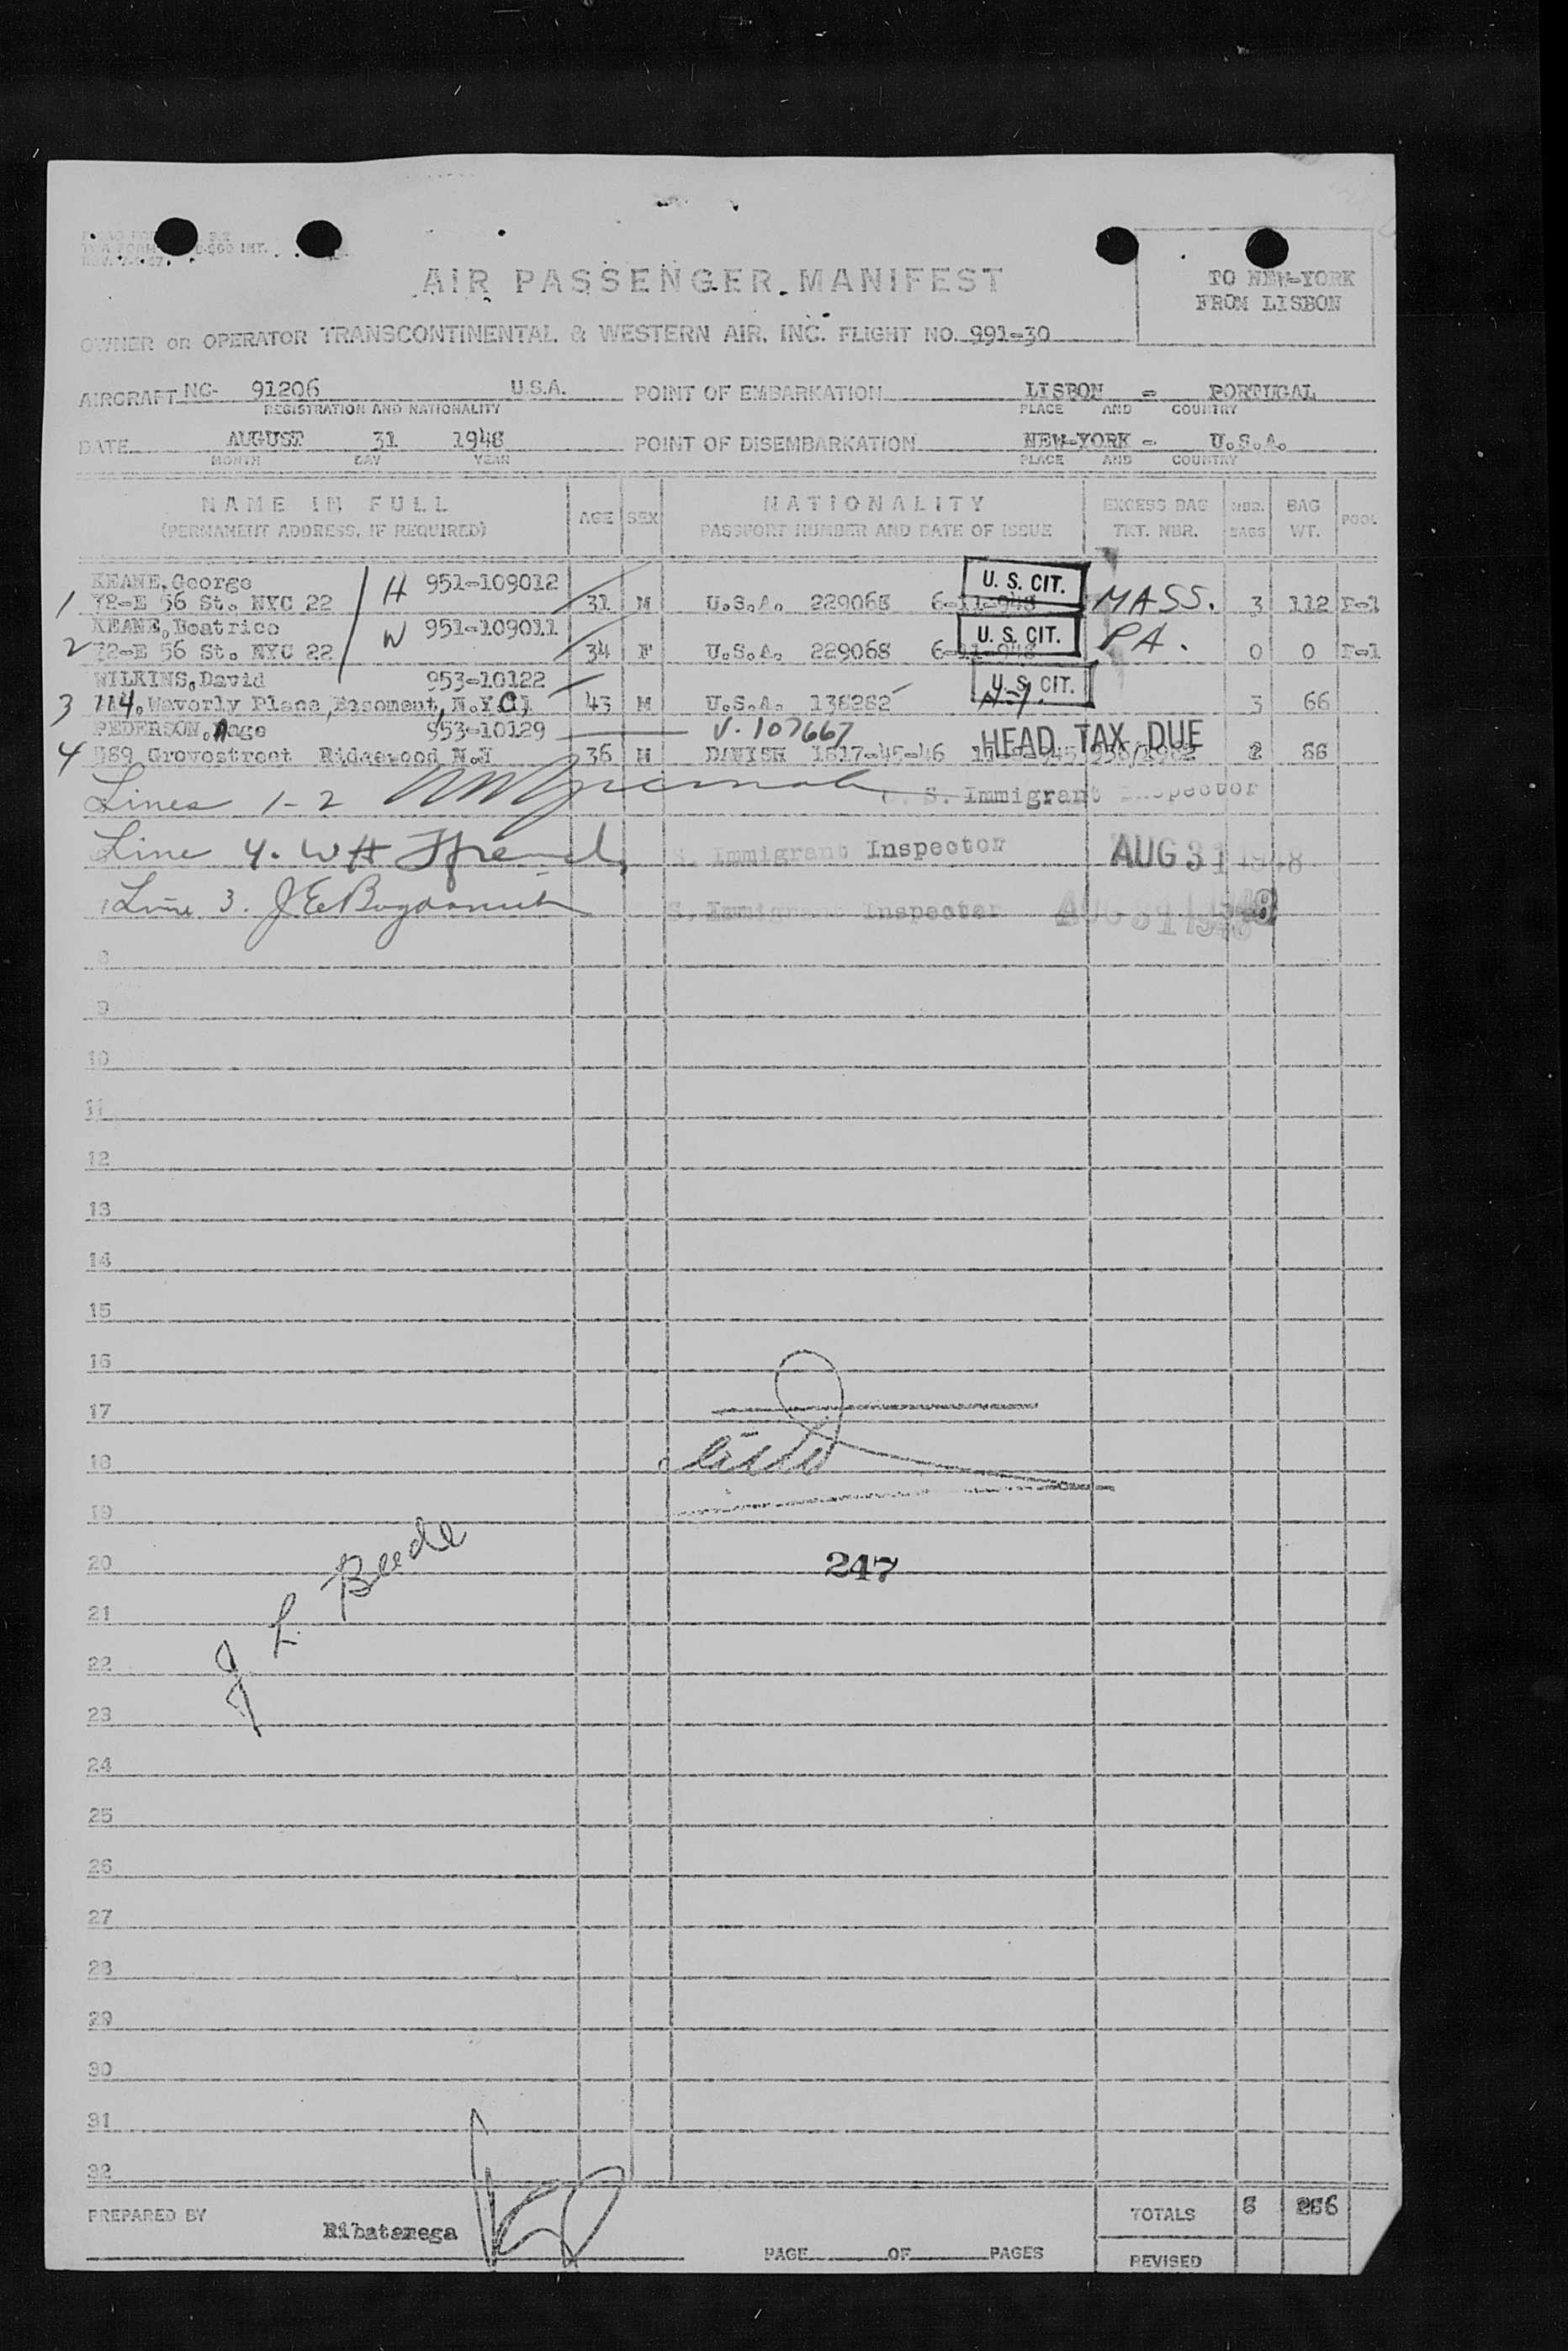 TO NEW-YORK
FROM LISBON
AIR PASSENGER MANIFEST
OWNER OR OPERATOR TRANSCONTINENTAL & WESTERN AIR, INC. FLIGHT NO. 991-30
AIRCRAFT NC- 91206 U.S.A. POINT OF EMBARKATION LISBON - PORTUGAL
REGISTRATION AND NATIONALITY PLACE AND COUNTRY
DATE AUGUST 31 1948 POINT OF DISEMBARKATION NEW-YORK - U.S.A.
MONTH DAY YEAR PLACE AND COUNTRY
NAME IN FULL AGE SEX NATIONALITY EXCESS BAG NBR. BAG POOL
(PERMANENT ADDRESS, IF REQUIRED) PASSPORT NUMBER AND DATE OF ISSUE TKT. NBR. BAGS WT.
KEANE, George H 951-109012 U. S. CIT.
1 72-E 56 St. NYC 22 31 M U.S.A. 229068 6-11-948 MASS. 3 112 P-1
KEANE, Beatrice W 951-109011 U. S. CIT. PA.
2 72-E 56 St. NYC 22 34 F U.S.A. 229068 6-11-948 0 0 P-1
WILKINS, David 953-10122 U. S. CIT.
3 114, Waverly Place, Basement, N.Y.C) 43 M U.S.A. 138282 3 66
PEDERSON, Aage 953-10129 V. 107667 HEAD TAX DUE
4 Grovestreet Ridgewood 36 M DANISH 1817-45-46 2 88
Lines 1-2 U. S. Immigrant Inspector
Line 4. W H S. Immigrant Inspector AUG 31 1948
Line 3. J E S. Immigrant Inspector AUG 31 1948
8
9
10
11
12
13
14
15
16
17
18
19
20 247
J L Beede
21
22
23
24
25
26
27
28
29
30
31
32
PREPARED BY TOTALS 8 266
Ribatamega
PAGE OF PAGES REVISED